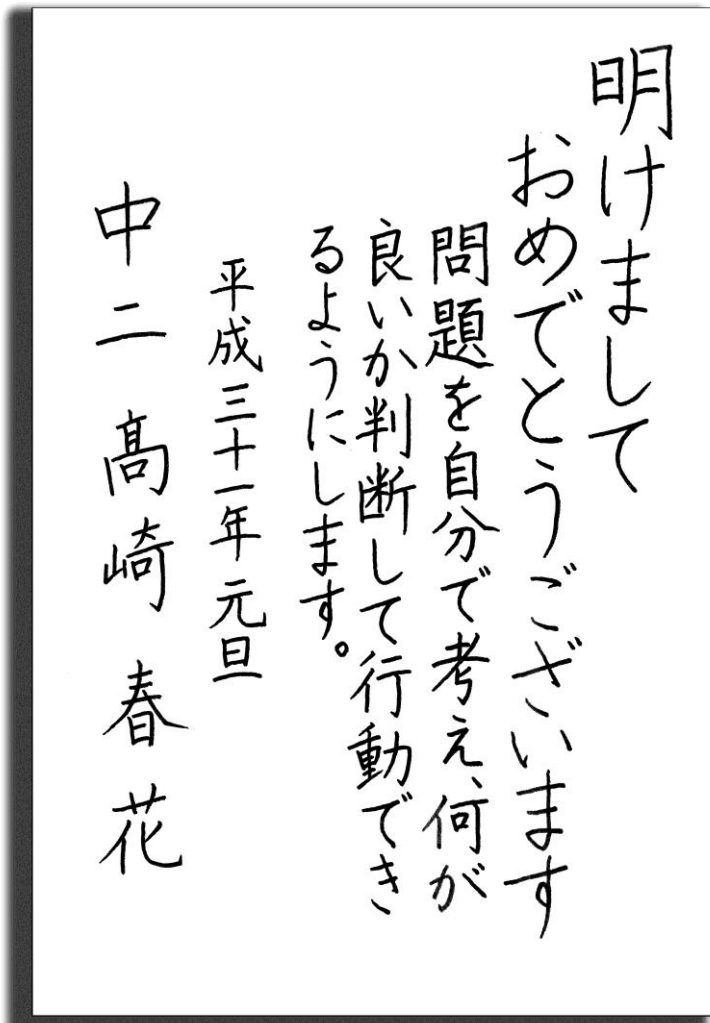 明けまして
おめでとうございます
問題を自分で考え、何が
良いか判断して行動でき
るようにします。
平成三十一年元旦
中二 髙崎春花